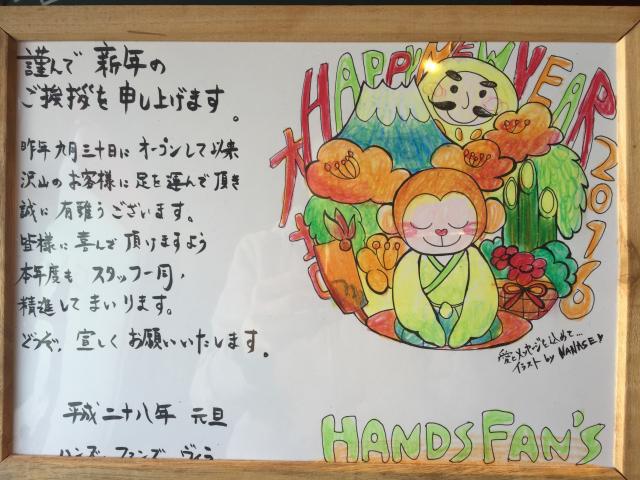 謹んで 新年の
ご挨拶を申し上げます。
昨年九月三十日にオープンして以来
沢山のお客様に足を運んで頂き
誠に有難うございます。
皆様に喜んで頂けますよう
本年度も スタッフ一同、
精進してまいります。
どうぞ、宜しくお願いいたします。
平成二十八年 元旦
ハンズ ファンズ ヴィラ
HAPPY NEW YEAR
2016
大吉
愛とメッセージを込めて...
イラスト by NANASE
HANDS FAN'S